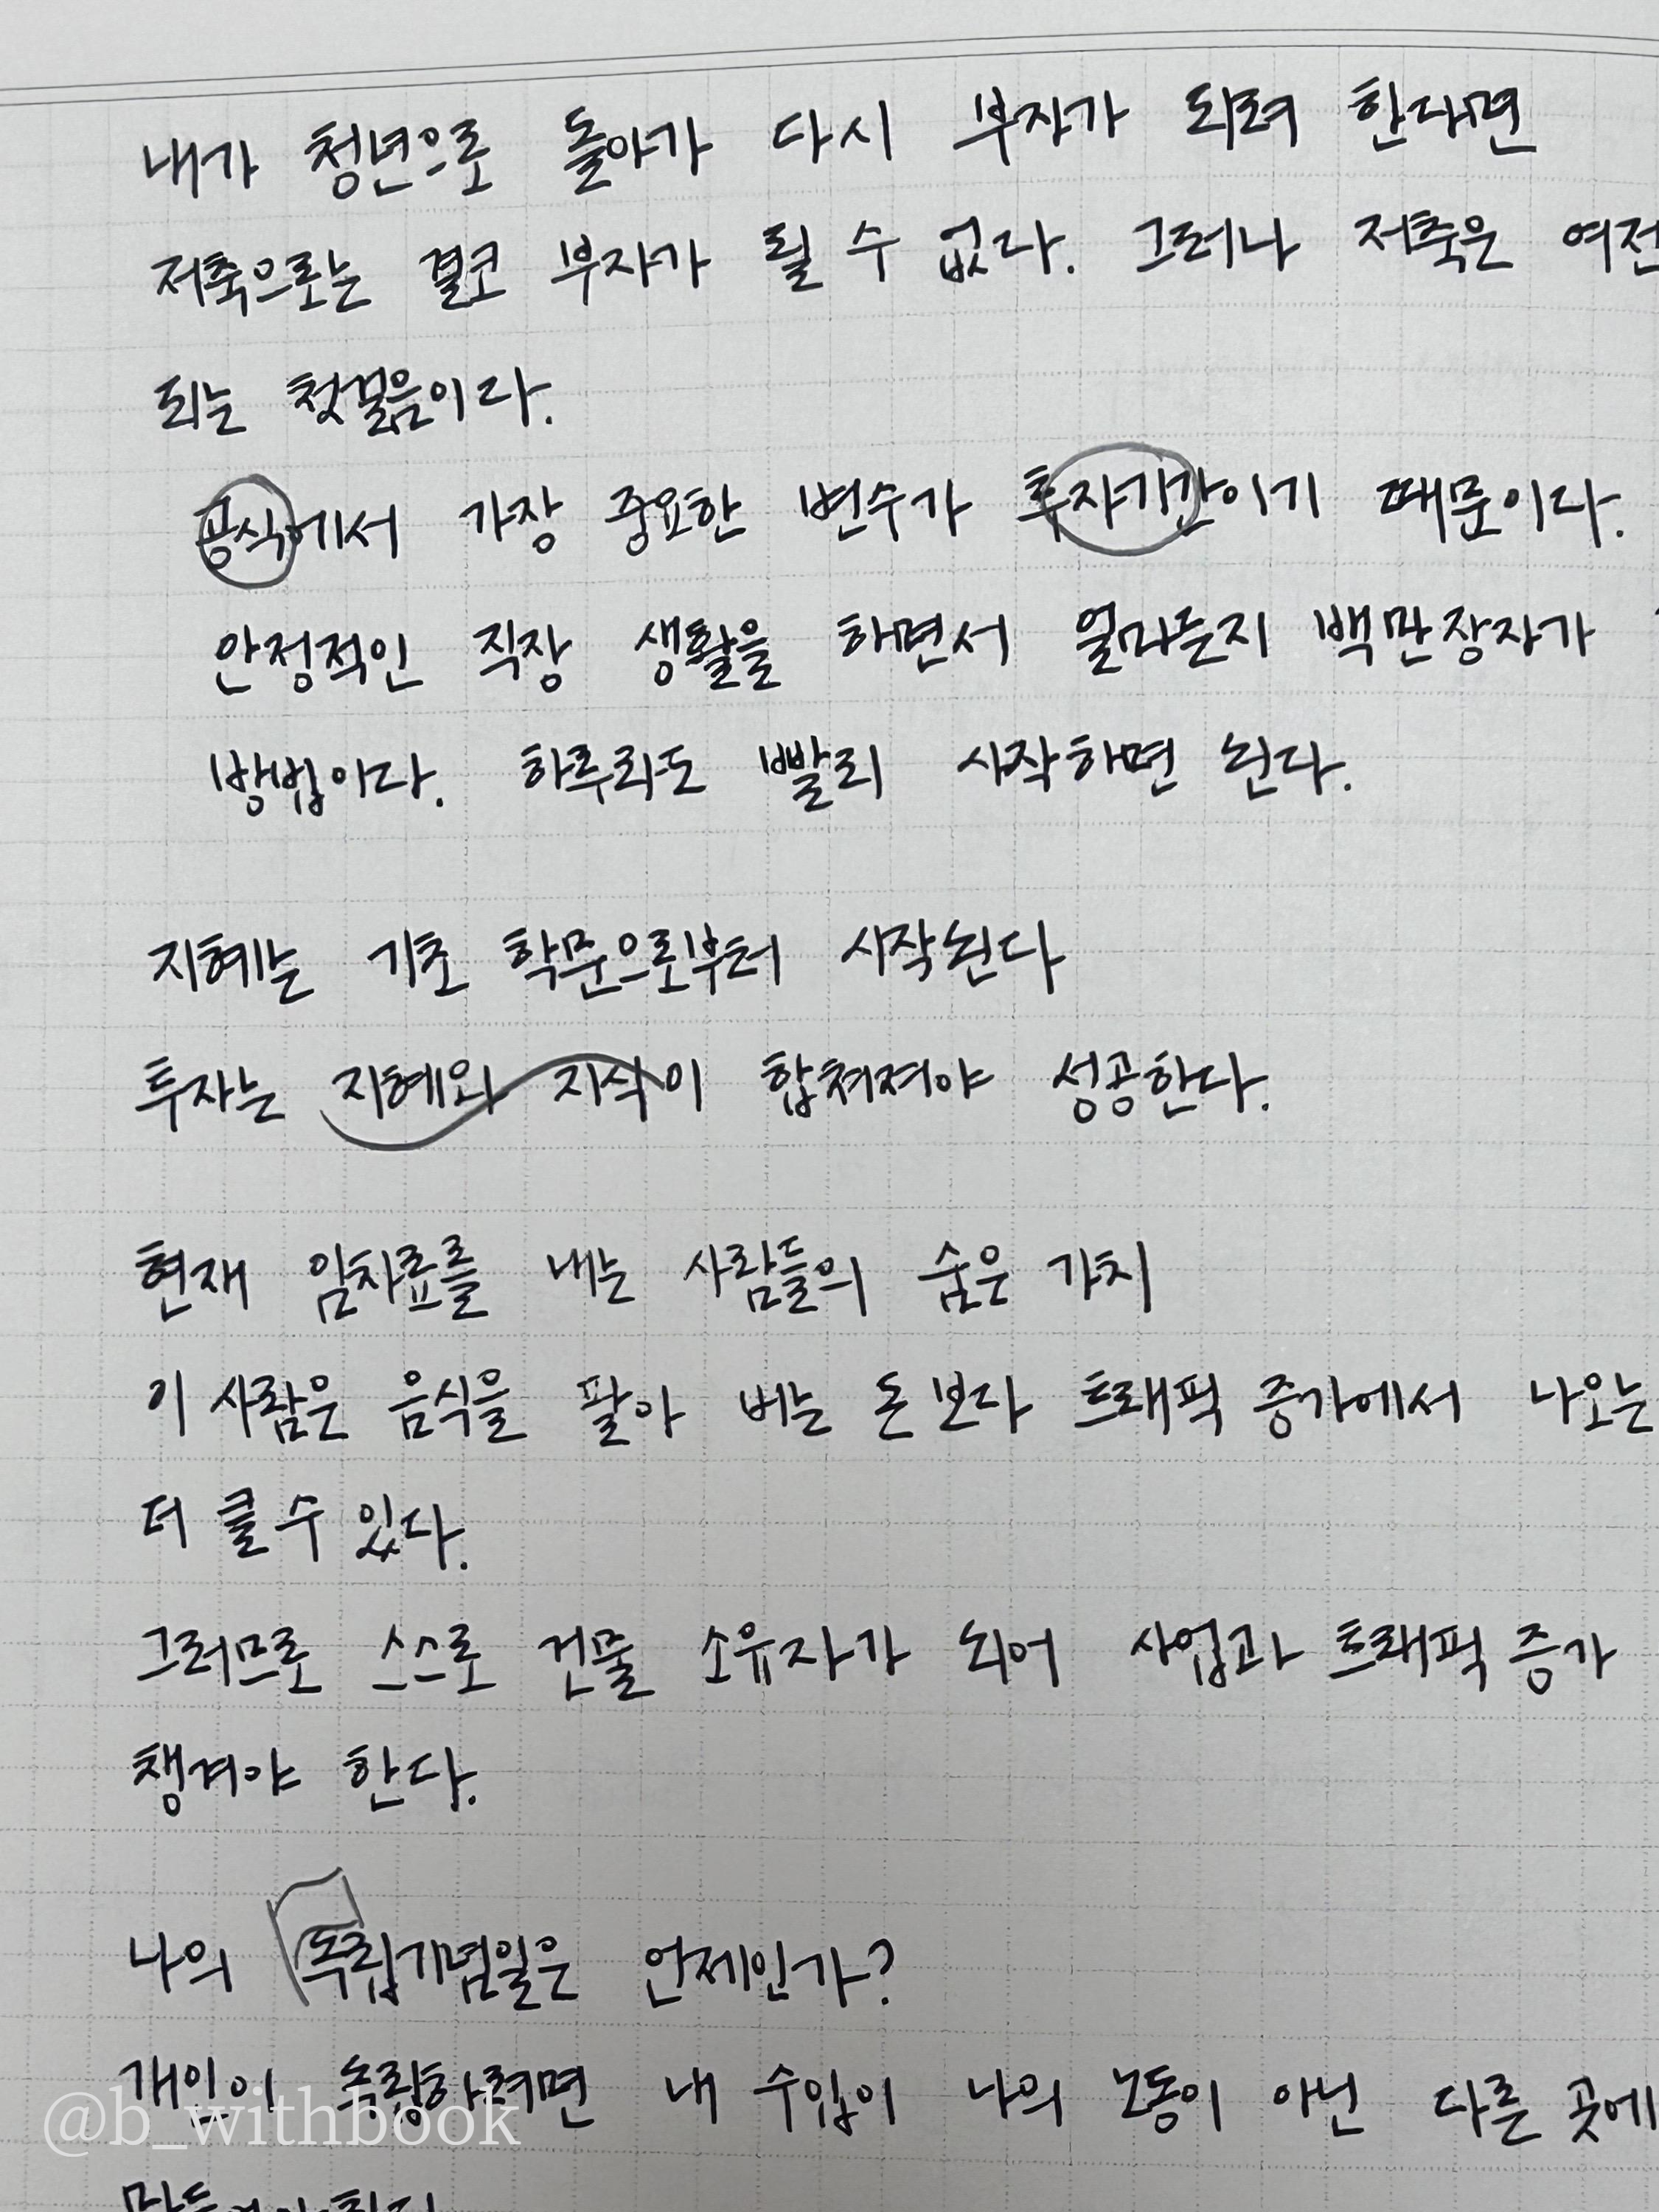 내가 청년으로 돌아가 다시 부자가 되려 한다면
저축으로는 결코 부자가 될 수 없다. 그러나 저축은 여전
되는 첫걸음이다.
공식에서 가장 중요한 변수가 투자기간이기 때문이다.
안정적인 직장 생활을 하면서 얼마든지 백만장자가
방법이다. 하루라도 빨리 시작하면 된다.
지혜는 기초 학문으로부터 시작된다
투자는 지혜와 지식이 합쳐져야 성공한다.
현재 임차료를 내는 사람들의 숨은 가치
이 사람은 음식을 팔아 버는 돈보다 트래픽 증가에서 나오는
더 클 수 있다.
그러므로 스스로 건물 소유자가 되어 사업과 트래픽 증가
챙겨야 한다.
나의 독립기념일은 언제인가?
개인이 독립하려면 내 수입이 나의 노동이 아닌 다른 곳에
@b_withbook